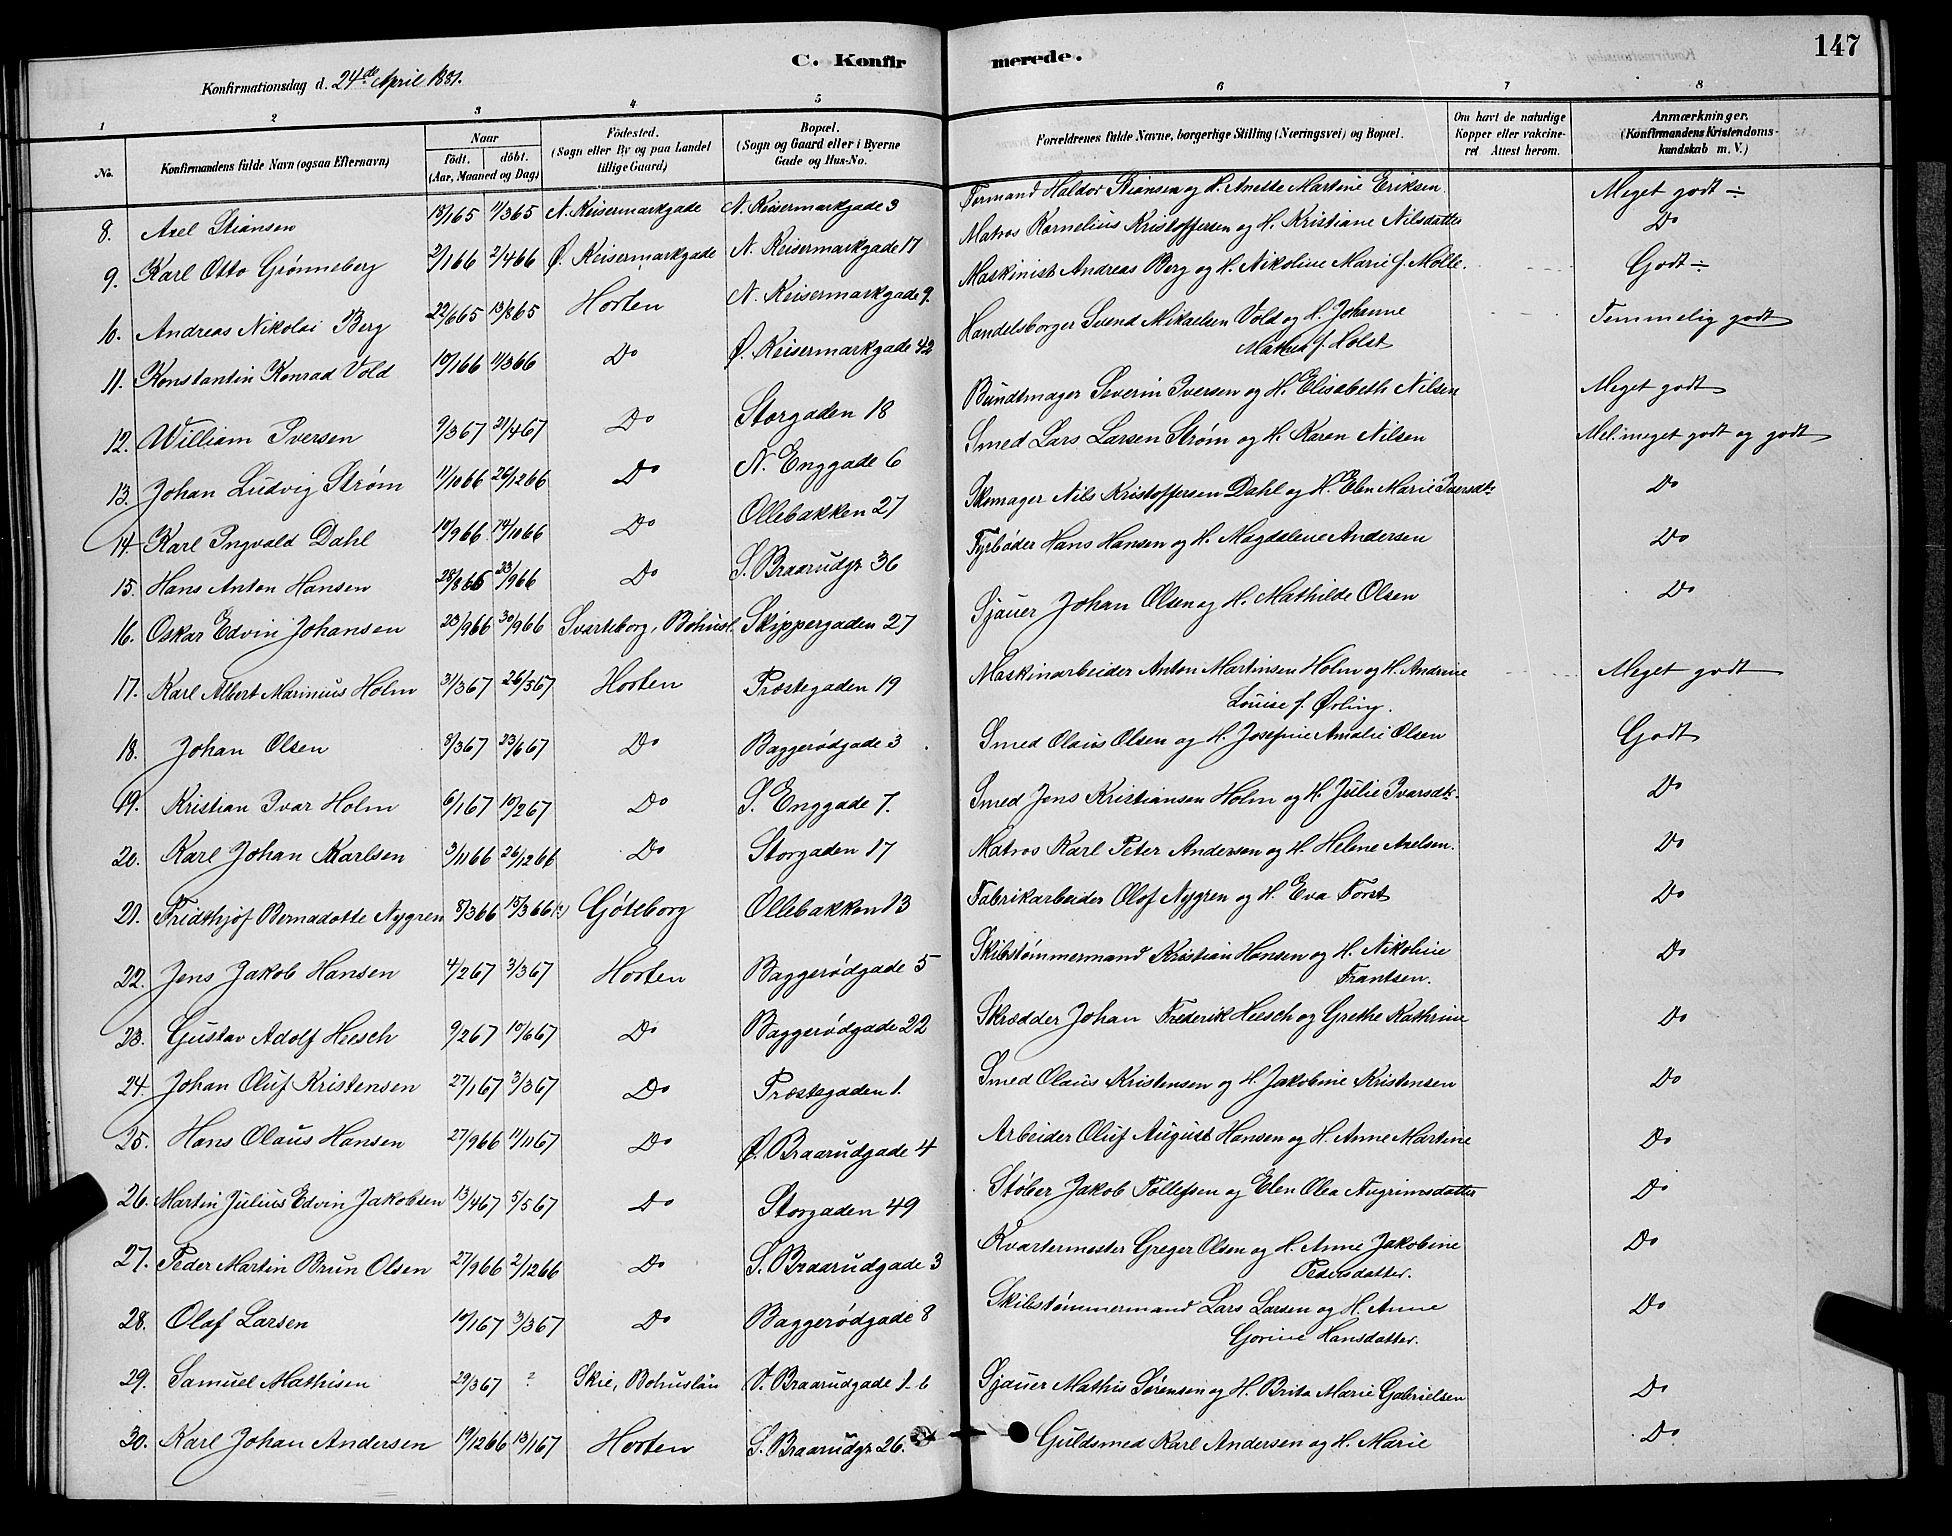 147
C. Konfirmerede.
Konfirmationsdag d. 24de April 1881.
1 2 3 4 5 6 7 8
No. Konfirmandens fulde Navn (ogsaa Efternavn) Naar födt. döbt. (Aar, Maaned og Dag) Födested. (Sogn eller By og paa Landet tillige Gaard) Bopæl. (Sogn og Gaard eller i Byerne Gade og Hus-No. Forældrenes fulde Navne, borgerlige Stilling (Næringsvei) og Bopæl. Om havt de naturlige Kopper eller vakcineret. Attest herom. Anmærkninger. (Konfirmandens Kristendomskundskab m. V.)
8. Axel Stiansen 18/1 65 11/3 65 N. Keisermarkgade N. Keisermarkgade 3 Formand Haldor Stiansen og H. Anette Martine Eriksen Meget godt ÷
9. Karl Otto Grønneberg 2/1 66 2/4 66 Ø. Keisermarkgade N. Keisermarkgade 17 Matros Kornelius Kristoffersen og H. Kristiane Nilsdatter Do
10. Andreas Nikolai Berg 22/6 65 13/8 65 Horten N. Keisermarkgade 9. Maskinist Andreas Berg og H. Nikoline Marie f. Molle. Godt ÷
11. Konstantin Konrad Vold 10/1 66 11/3 66 Do Ø. Keisermarkgade 42 Handelsborger Svend Mikaelsen Vold og H. Johanne f. Holst Temmelig godt
12. William Iversen 9/3 67 21/4 67 Do Storgaden 18 Bundtmager Severin Iversen og H. Elisabeth Nilsen Meget godt
13. Johan Ludvig Strøm 11/10 66 26/12 66 Do N. Enggade 6 Smed Lars Larsen Strøm og H. Karen Nilsen Mel. meget godt og godt
14. Karl Ingvald Dahl 10/9 66 14/10 66 Do Ollebakken 27 Skomager Nils Kristoffersen Dahl og H. Elen Marie Iversdt. Do
15. Hans Anton Hansen 28/8 66 23/9 66 Do S. Braarudgt 36 Fyrbøder Hans Hansen og H. Magdalene Andersen Do
16. Oskar Edvin Johansen 23/9 66 30/9 66 Svarteborg, Bohusl. Skippergaden 27 Sjauer Johan Olsen og H. Mathilde Olsen Do
17. Karl Albert Marinius Holm 31/3 67 26/5 67 Horten Præstegaden 19 Maskinarbeider Anton Martinsen Holm og H. Andrine Louise f. Ørling. Meget godt
18. Johan Olsen 8/3 67 23/6 67 Do Baggerødgade 3 Smed Olaus Olsen og H. Josefine Amalie Olsen Godt
19. Kristian Ivar Holm 6/1 67 10/2 67 Do S. Enggade 7. Smed Jens Kristiansen Holm og H. Julie Ivarsdt. Do
20. Karl Johan Karlsen 3/11 66 26/12 66 Do Storgaden 17 Matros Karl Peter Andersen og H. Helene Axelsen. Do
21. Fridthjof Bernadotte Nygren 8/3 66 15/3 66 (?) Gøteborg Ollebakken 13 Fabrikarbeider Olof Nygren og H. Eva Forst Do
22. Jens Jakob Hansen 4/2 67 3/3 67 Horten Baggerødgade 5 Skibstømmermand Kristian Hansen og H. Nikoline Frantsen. Do
23. Gustav Adolf Heesch 9/2 67 10/6 67 Do Baggerødgade 22 Skrædder Johan Frederik Heesch og Grethe Kathrine Do
24. Johan Oluf Kristensen 27/1 67 3/3 67 Do Præstegaden 1. Smed Olaus Kristensen og H. Jakobine Kristensen Do
25. Hans Olaus Hansen 27/9 66 11/11 67 Do Ø. Braarudgade 4 Arbeider Oluf August Hansen og H. Anne Martine Do
26. Martin Julius Edvin Jakobsen 13/4 67 5/5 67 Do Storgaden 49 Støber Jakob Tollefsen og Elen Olea Do
27. Peder Martin Brun Olsen 27/9 66 2/12 66 Do S. Braarudgade 3 Kvartermester Greger Olsen og H. Anne Jakobine Pedersdatter. Do
28. Olaf Larsen 10/1 67 3/3 67 Do Baggerødgade 8 Skibstømmermand Lars Larsen og H. Anne Gorine Hansdatter. Do
29. Samuel Mathisen 29/3 67 ? Skie, Bohuslän Braarudgade 1 b Sjauer Mathis Sørensen og H. Brita Marie Gabrielsen Do
30. Karl Johan Andersen 19/12 66 13/1 67 Horten S. Braarudgt 26. Guldsmed Karl Andersen og H. Marie Do